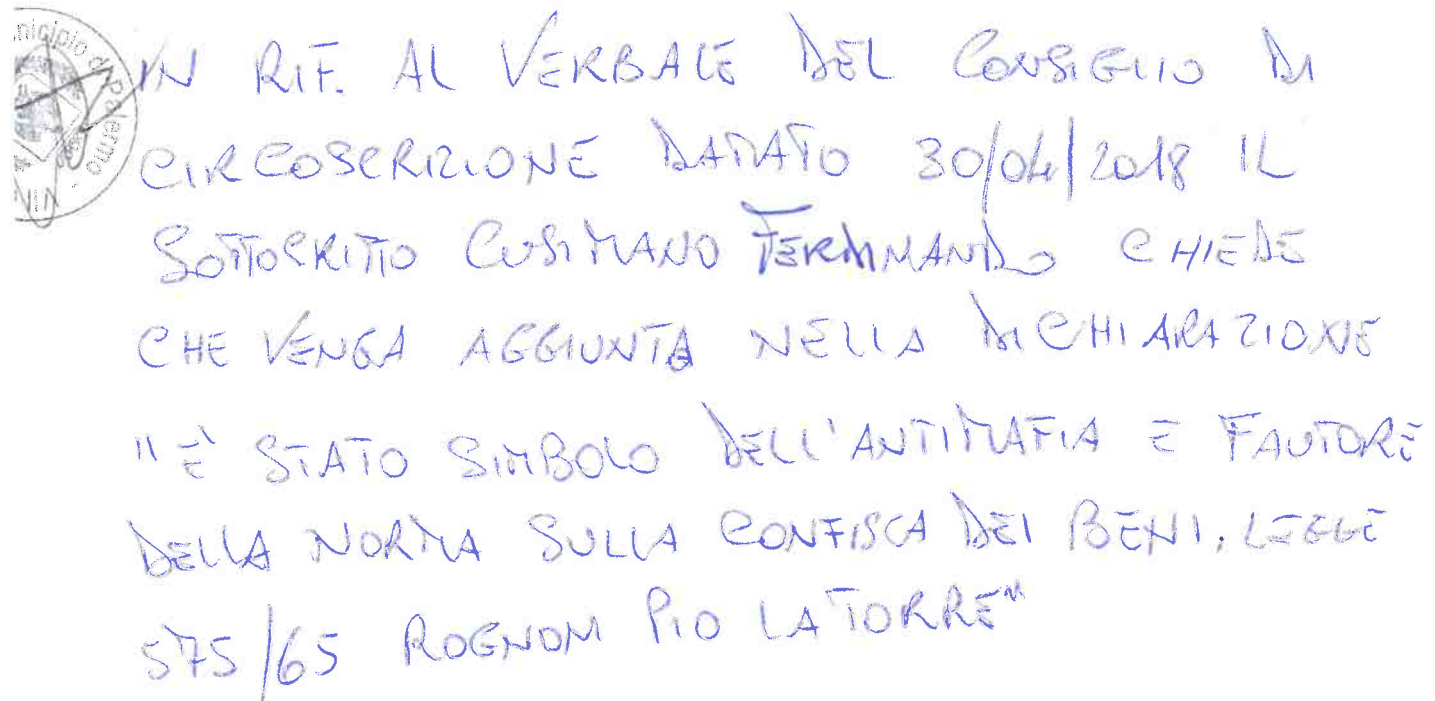 IN RIF. AL VERBALE DEL CONSIGLIO DI
CIRCOSCRIZIONE DATATO 30/04/2018 IL
SOTTOSCRITTO CUSIMANO FERDINANDO CHIEDE
CHE VENGA AGGIUNTA NELLA DICHIARAZIONE
"È STATO SIMBOLO DELL'ANTIMAFIA E FAUTORE
DELLA NORMA SULLA CONFISCA DEI BENI. LEGGE
575/65 ROGNONI PIO LA TORRE"
nicipio di Palermo